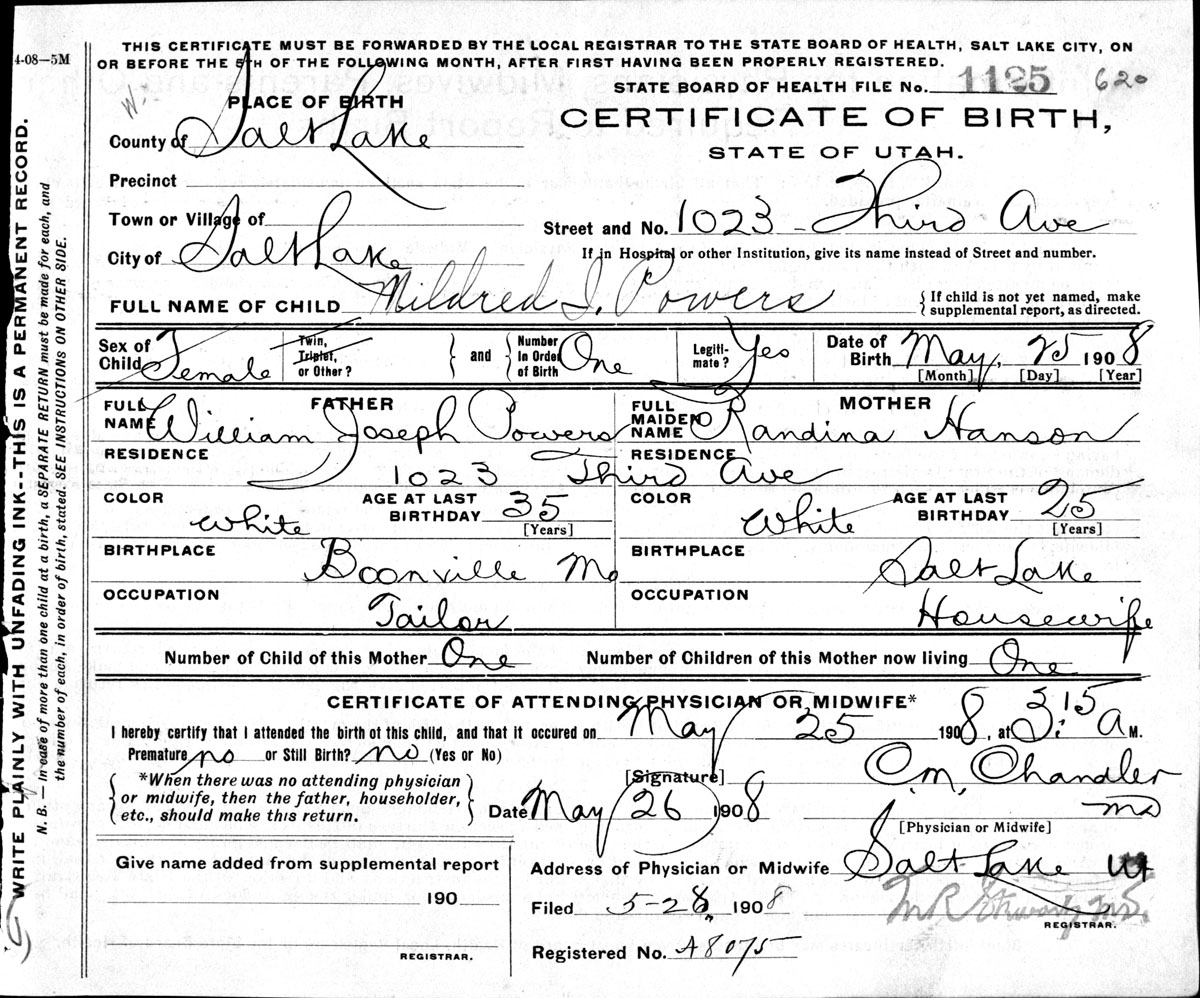 4-08—5M
THIS CERTIFICATE MUST BE FORWARDED BY THE LOCAL REGISTRAR TO THE STATE BOARD OF HEALTH, SALT LAKE CITY, ON
OR BEFORE THE 5TH OF THE FOLLOWING MONTH, AFTER FIRST HAVING BEEN PROPERLY REGISTERED.
STATE BOARD OF HEALTH FILE No. 1125 620
PLACE OF BIRTH
CERTIFICATE OF BIRTH,
STATE OF UTAH.
County of Salt Lake
Precinct
Town or Village of
Street and No. 1023 - Third Ave
City of Salt Lake
If in Hospital or other Institution, give its name instead of Street and number.
FULL NAME OF CHILD Mildred I. Powers
{If child is not yet named, make
supplemental report, as directed.
Sex of Child Female
Twin, Triplet, or Other?
and
Number in Order of Birth One
Legitimate? Yes
Date of Birth May, 25 1908
[Month] [Day] [Year]
FATHER
FULL NAME William Joseph Powers
MOTHER
FULL MAIDEN NAME Randina Hanson
RESIDENCE RESIDENCE
1023 Third Ave
COLOR White
AGE AT LAST BIRTHDAY 35
[Years]
COLOR White
AGE AT LAST BIRTHDAY 25
[Years]
BIRTHPLACE Boonville Mo
BIRTHPLACE Salt Lake
OCCUPATION Tailor
OCCUPATION Housewife
Number of Child of this Mother One
Number of Children of this Mother now living One
CERTIFICATE OF ATTENDING PHYSICIAN OR MIDWIFE*
I hereby certify that I attended the birth of this child, and that it occured on May 25 1908, at 3:15 A M.
Premature no or Still Birth? no (Yes or No)
[Signature] C.M. Chandler
*When there was no attending physician
or midwife, then the father, householder,
etc., should make this return.
Date May 26 1908
MD
[Physician or Midwife]
Give name added from supplemental report
190
REGISTRAR.
Address of Physician or Midwife Salt Lake Ut
Filed 5-28, 1908
REGISTRAR.
Registered No. A8075
WRITE PLAINLY WITH UNFADING INK--THIS IS A PERMANENT RECORD.
N. B.— In case of more than one child at a birth, a SEPARATE RETURN must be made for each, and
the number of each, in order of birth, stated. SEE INSTRUCTIONS ON OTHER SIDE.